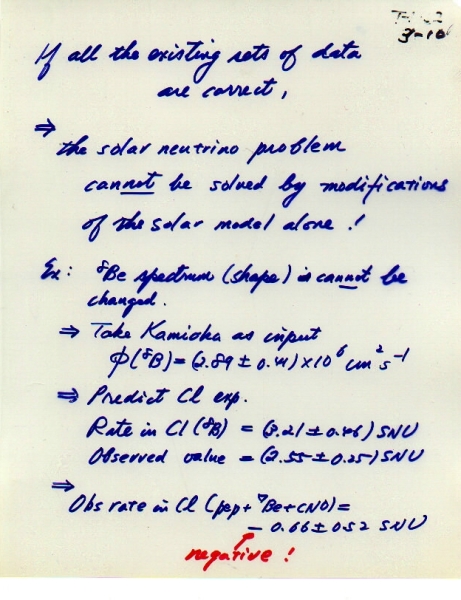 3-10
If all the existing sets of data
are correct,
⇒
the solar neutrino problem
cannot be solved by modifications
of the solar model alone!
Ex: ⁸Be spectrum (shape) is cannot be
changed.
⇒ Take Kamioka as input
ϕ(⁸B) = (2.89 ± 0.41) × 10⁶ cm² s⁻¹
⇒ Predict Cl exp.
Rate in Cl (⁸B) = (3.21 ± 0.46) SNU
Observed value = (2.55 ± 0.25) SNU
⇒
Obs rate in Cl (pep + ⁷Be + CNO) =
- 0.66 ± 0.52 SNU
negative!